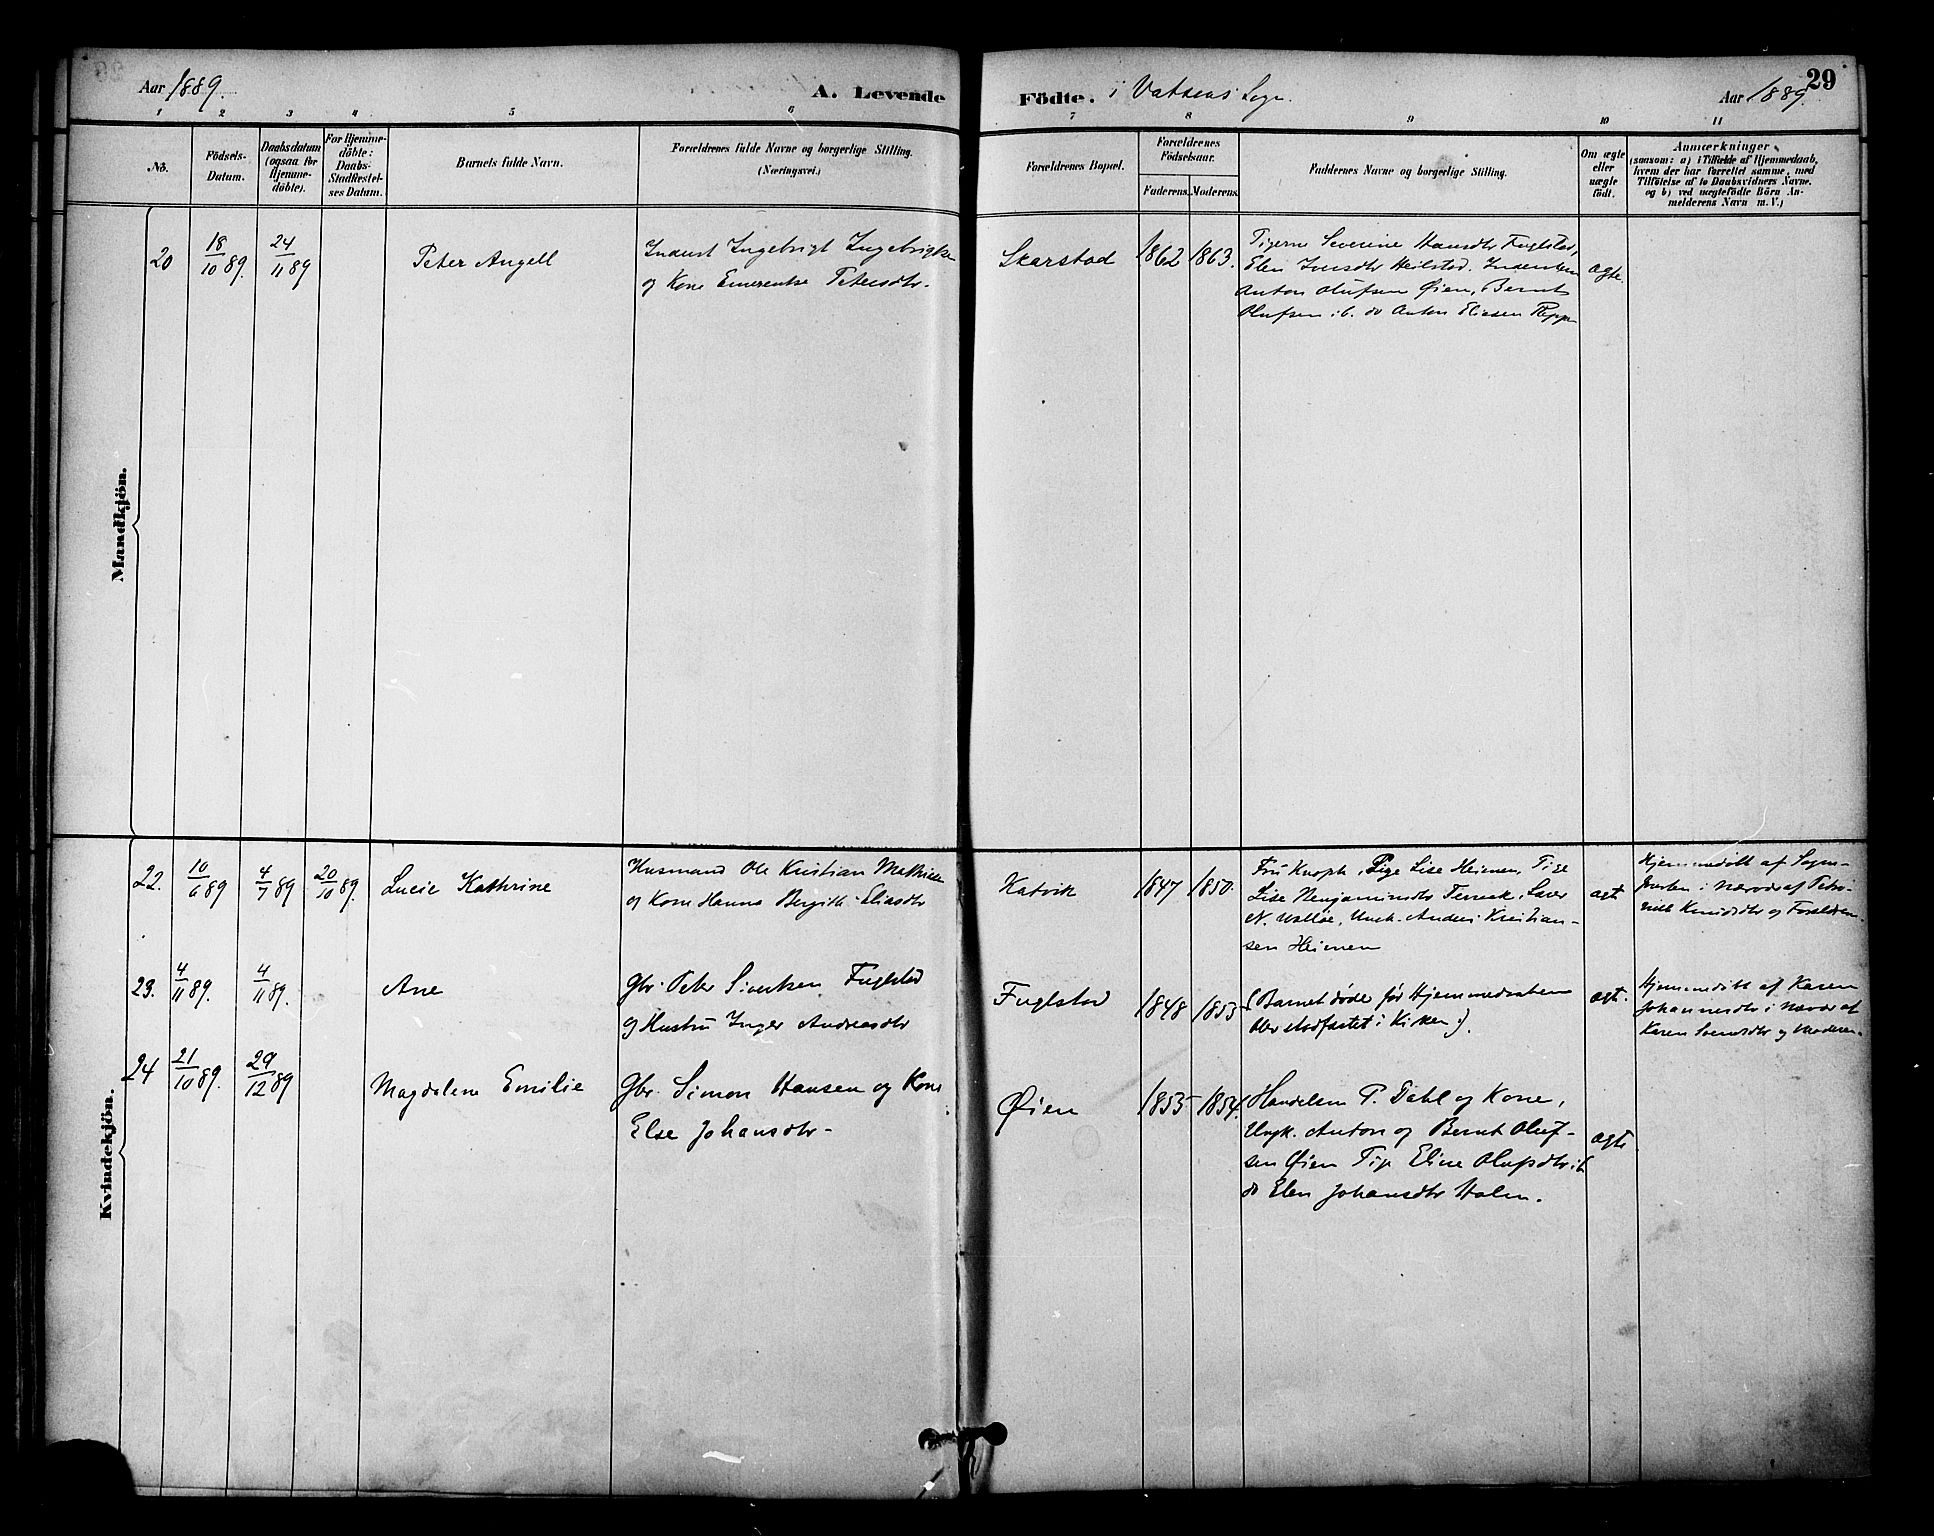 Aar 1889.
A. Levende
Födte. i Vatsens Sogn.
Aar 1889.
29
1 2 3 4 5 6 7 8 9 10 11
No.
Födsels-
Datum.
Daabsdatum
(ogsaa for
Hjemme-
döbte).
For Hjemme-
döbte:
Daabs-
Stadfæstel-
ses Datum.
Barnets fulde Navn.
Forældrenes fulde Navne og borgerlige Stilling.
(Næringsvei.)
Forældrenes Bopæl.
Forældrenes
Födselsaar.
Faderens. Moderens.
Faddernes Navne og borgerlige Stilling.
Om ægte
eller
uægte
födt.
Anmærkninger
(saasom: a) i Tilfælde af Hjemmedaab,
hvem der har forrettet samme, med
Tilföielse af to Daabsvidners Navne,
og b) ved uægtefödte Börn An-
melderens Navn m. V.)
Mandkjön.
20 18/10 89. 24/11 89 Peter Angell
Inderst Ingebrigt Ingebrigtsen
og Kone Emerentse Petersdtr.
Skarstad 1862 1863.
Pigerne Severine Hansdtr Fuglstad,
Elen Iversdtr Heilstad.
Anton Olufsen Øien, Bernt
Olufsen i b. do Anton Eliasen
ægte.
Kvindekjön.
22. 10/6 89 4/7 89 20/10 89. Lucie Kathrine
Husmand Ole Kristian Mathisen
og Kone Hanna Bergitte Eliasdtr
Katvik 1847 1850.
Fru Knoph, Pige Lise Heimen, Pige
Lise Benjaminsdtr
N. Ungk. Anders Kristian-
sen Heimen
ægte
Hjemmedøbt af Sogne-
præsten i Nærvær af Petro-
nille Knudsdtr og Forældrene.
23. 4/11 89. 4/11 89. Ane
Gbr. Peter Sivertsen Fuglstad
og Hustru Inger Andreasdtr
Fuglstad 1848 1853
(Barnet døde før Hjemmedaaben
blev stadfæstet i Kirken.)
ægte.
Hjemmedøbt af Karen
Johannesdtr i Nærvær af
Karen Svendsdtr og Moderen.
24 21/10 89. 29/12 89 Magdalena Emilie
Gbr. Simon Hansen og Kone
Else Johansdtr.
Øien 1853 1854.
Handelsm P. Dahl og Kone,
Ungk. Anton og Bernt Oluf-
sen Øien Pige Eline Olufsdtr i b
do Elen Johansdtr Holm.
ægte